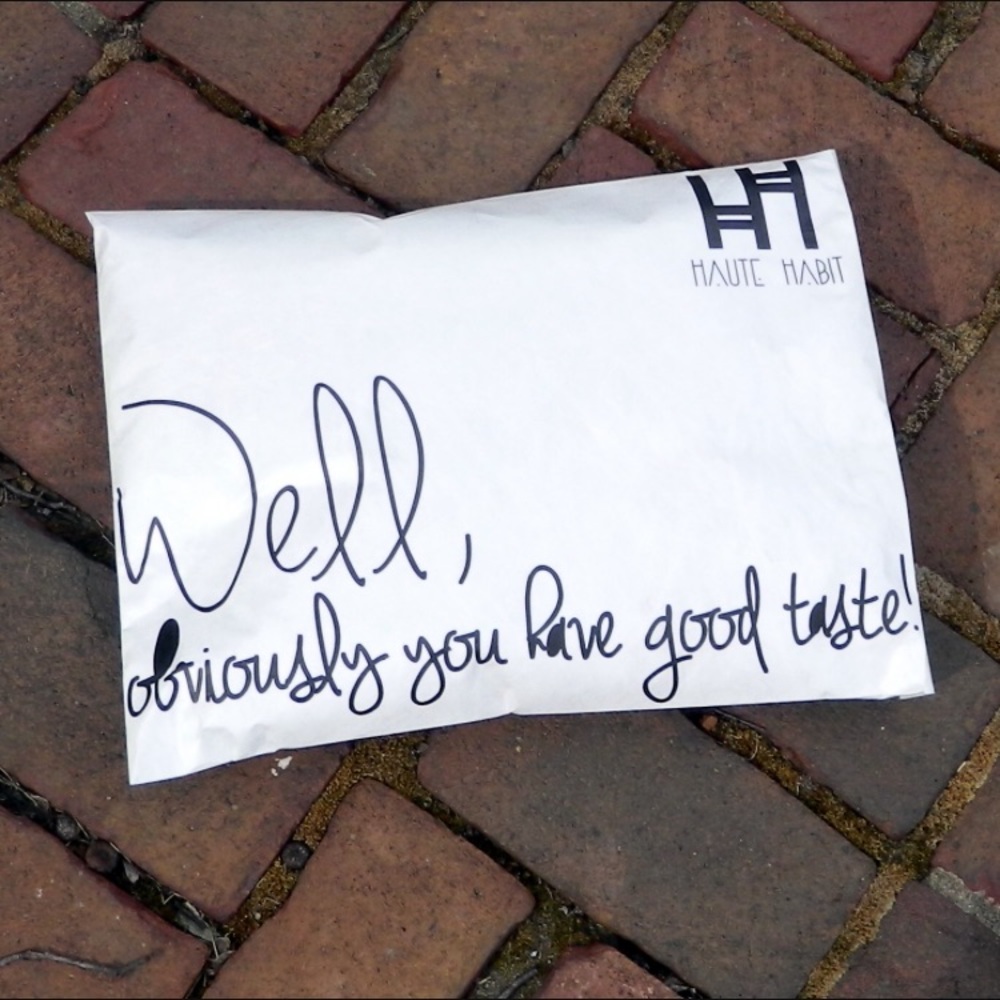 HH
HAUTE HABIT
Well,
obviously you have good taste!